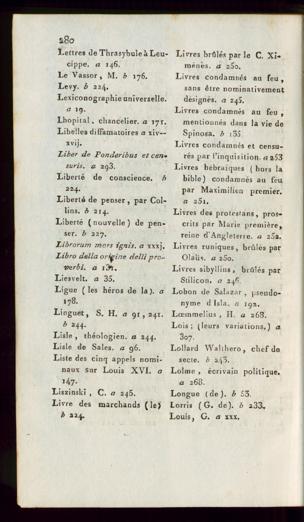 280
Lettres de Thrasybule à Leu-
cippe. a 146.
Le Vassor, M. b 176.
Levy. b 224.
Lexiconographie universelle.
a 19.
Lhopital. chancelier. a 171.
Libelles diffamatoires a xiv—
xvij.
Liber de Ponderibus et cen-
suris. a 293.
Liberté de conscience. b
224.
Liberté de penser, par Col-
lins. b 214.
Liberté (nouvelle) de pen-
ser. b 227.
Librorum mors ignis. a xxxj.
Libro della origine delli pro-
verbi. a 132.
Liesvelt. a 35.
Ligue (les héros de la). a
178.
Linguet, S. H. a 91, 241.
b 244.
Lisle, théologien. a 244.
Lisle de Sales. a 96.
Liste des cinq appels nomi-
naux sur Louis XVI. a
147.
Liszinski, C. a 245.
Livre des marchands (le)
b 224.
Livres brûlés par le C. Xi-
menès. a 250.
Livres condamnés au feu,
sans être nominativement
désignés. a 245.
Livres condamnés au feu,
mentionnés dans la vie de
Spinosa. b 135.
Livres condamnés et censu-
rés par l'inquisition. a 253
Livres hébraïques (hors la
bible) condamnés au feu
par Maximilien premier.
a 251.
Livres des protestans, pros-
crits par Marie première,
reine d'Angleterre. a 252.
Livres runiques, brûlés par
Olaüs. a 250.
Livres sibyllins, brûlés par
Stilicon. a 246.
Lobon de Salazar, pseudo-
nyme d'Isla. a 192.
Lœmmelius, H. a 268.
Lois; (leurs variations.) a
307.
Lollard Walthero, chef de
secte. b 243.
Lolme, écrivain politique.
a 268.
Longue (de). b 53.
Lorris (G. de). b 233.
Louis, G. a xxx.